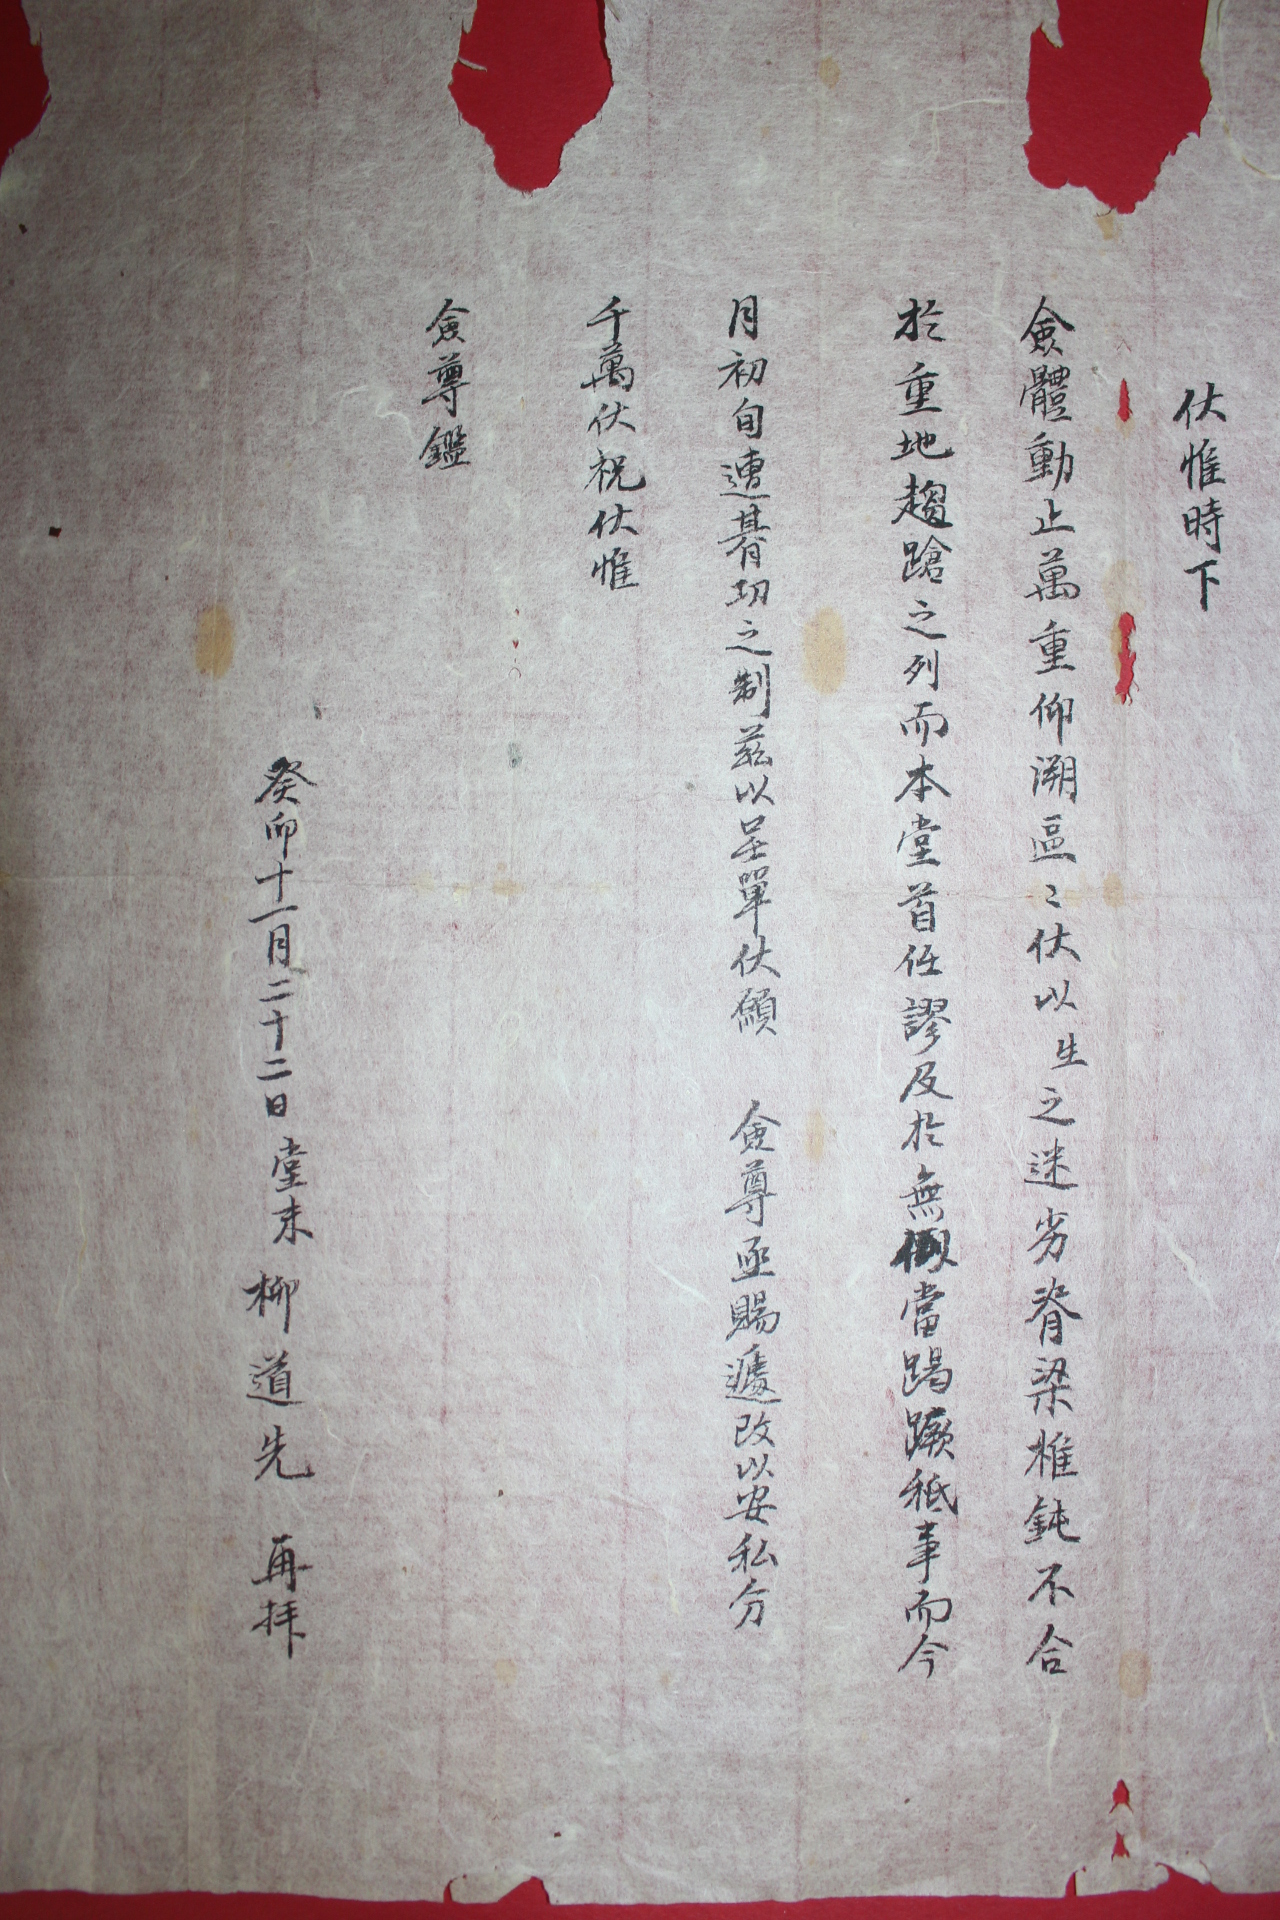 伏惟時下
僉體動止萬重仰溯區〻伏以生之迷劣脊梁椎鈍不合
於重地趨蹌之列而本堂首任謬及於無似當踢蹶秪事而今
月初旬遭朞功之制茲以呈單伏願 僉尊亟賜遞改以安私分
千萬伏祝伏惟
僉尊鑑
癸卯十一月二十二日 堂末 柳道先 再拜